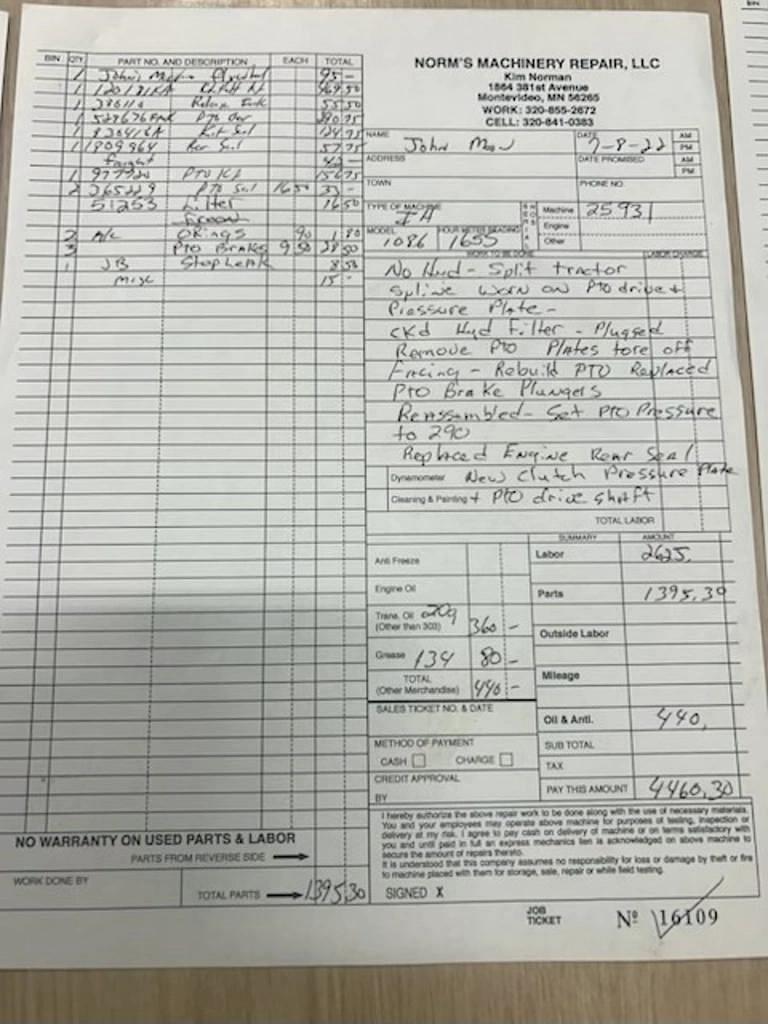 NORM'S MACHINERY REPAIR, LLC
Kim Norman
1864 381st Avenue
Montevideo, MN 56265
WORK: 320-855-2672
CELL: 320-841-0383
BIN QTY. PART NO. AND DESCRIPTION EACH TOTAL
1 John's Flywheel 95 -
1 Kit 969.50
1 Release Fork 55.50
1 528676 PTO
1 Rear Seal
1 Rear Seal 57.75
Freight
1 PTO Kit
2 365229 PTO Seal 16.50 33 -
51253 Filter 16.50
Freon
2 A/C ORings 90 1.80
3 PTO Brakes 9.50 28.50
1 JB Stop Leak 8.50
misc 15 -
NAME
DATE 7-8-22 AM
PM
John
ADDRESS
DATE PROMISED AM
PM
TOWN
PHONE NO.
TYPE OF MACHINE IH
SERIAL NOS Machine 25931
Engine
Other
MODEL 1086
HOUR METER READING 1655
WORK TO BE DONE LABOR CHARGE
No Hyd - Split tractor
Spline worn on Pto drive +
Pressure Plate -
CKd Hyd Filter - Plugged
Remove PTO Plates tore off
Facing - Rebuild PTO Replaced
PTO Brake Plungers
Reassembled - Set PTO Pressure
to 290
Replaced Engine Rear Seal
Dynamometer New Clutch Pressure Plate
Cleaning & Painting + PTO drive shaft
TOTAL LABOR
SUMMARY AMOUNT
Anti Freeze
Labor 2625.
Engine Oil
Parts 1395.30
Trans. Oil 20g
(Other than 303) 360 -
Outside Labor
Grease 134 80 -
Mileage
TOTAL
(Other Merchandise) 440 -
SALES TICKET NO. & DATE
Oil & Anti. 440.
METHOD OF PAYMENT
SUB TOTAL
CASH CHARGE
TAX
CREDIT APPROVAL
BY
PAY THIS AMOUNT 4460.30
I hereby authorize the above repair work to be done along with the use of necessary materials.
You and your employees may operate above machine for purposes of testing, inspection or
delivery at my risk. I agree to pay cash on delivery of machine or on terms satisfactory with
you and until paid in full an express mechanics lien is acknowledged on above machine to
secure the amount of repairs thereto.
It is understood that this company assumes no responsibility for loss or damage by theft or fire
to machine placed with them for storage, sale, repair or while field testing.
NO WARRANTY ON USED PARTS & LABOR
PARTS FROM REVERSE SIDE
WORK DONE BY
TOTAL PARTS 1395.30
SIGNED X
JOB
TICKET
Nº 16109